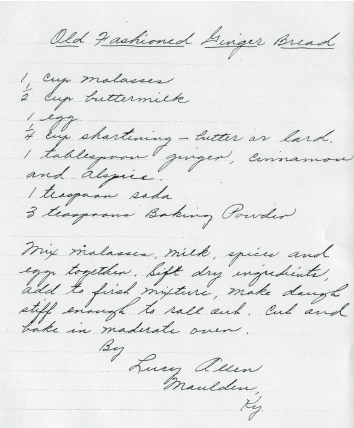 Old Fashioned Ginger Bread
1 cup molasses
1/2 cup buttermilk
1 egg
1/4 cup shortining - butter or lard.
1 tablespoon ginger, cinnamon
and Alspice.
1 teaspoon soda
3 teaspoons Baking Powder
Mix malasses, milk, spices and
egg together. Sift dry ingredients,
add to first mixture, make dough
stiff enough to roll out. Cut and
bake in moderate oven.
By
Lucy Allen
Maulden,
Ky